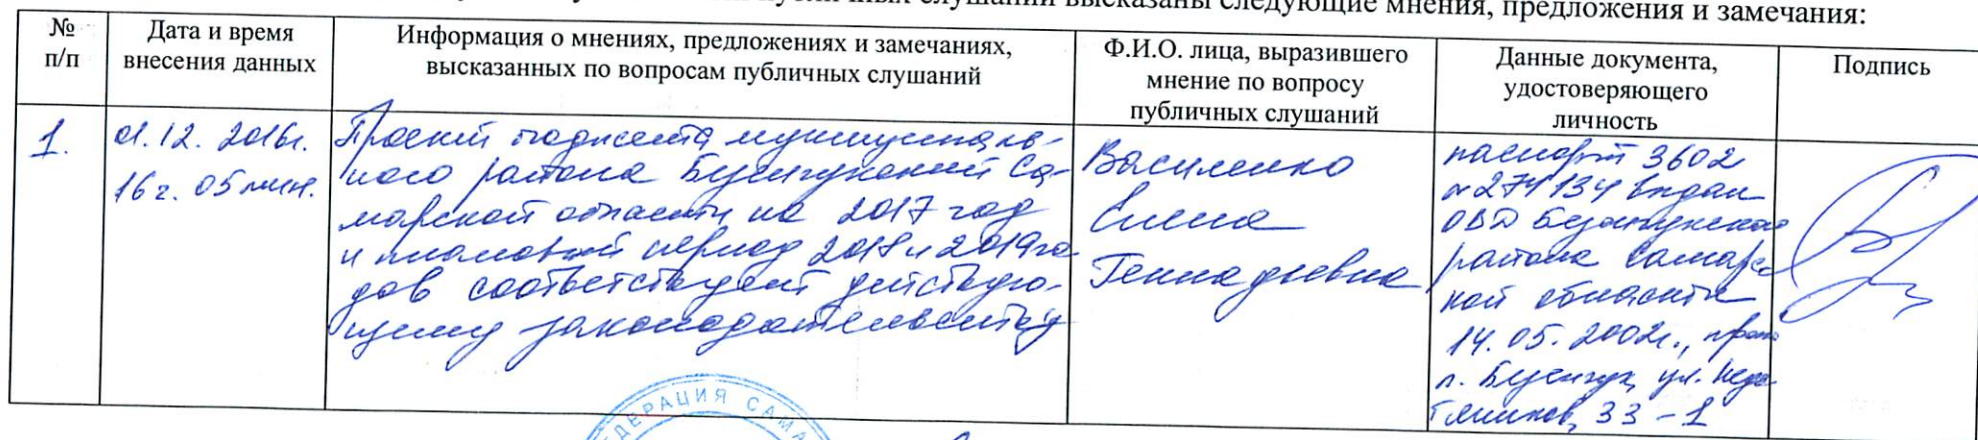 публичных слушаний высказаны следующие мнения, предложения и замечания:
№ п/п
Дата и время
внесения данных
Информация о мнениях, предложениях и замечаниях,
высказанных по вопросам публичных слушаний
Ф.И.О. лица, выразившего
мнение по вопросу
публичных слушаний
Данные документа,
удостоверяющего
личность
Подпись
1.
01.12.2016г.
16 г. 05 мин.
Проект бюджета муниципаль-
ного района Безенчукский Са-
марской области на 2017 год
и плановый период 2018 и 2019 го
дов соответствует действую-
щему законодательству
Василенко
Елена
Геннадьевна
паспорт 3602
№ 274134 выдан
ОВД Безенчукского
района Самарс
кой области
14.05.2002г.,
п. Безенчук, ул. Нефтя
тяников, 33 - 1
ФЕДЕРАЦИЯ САМА